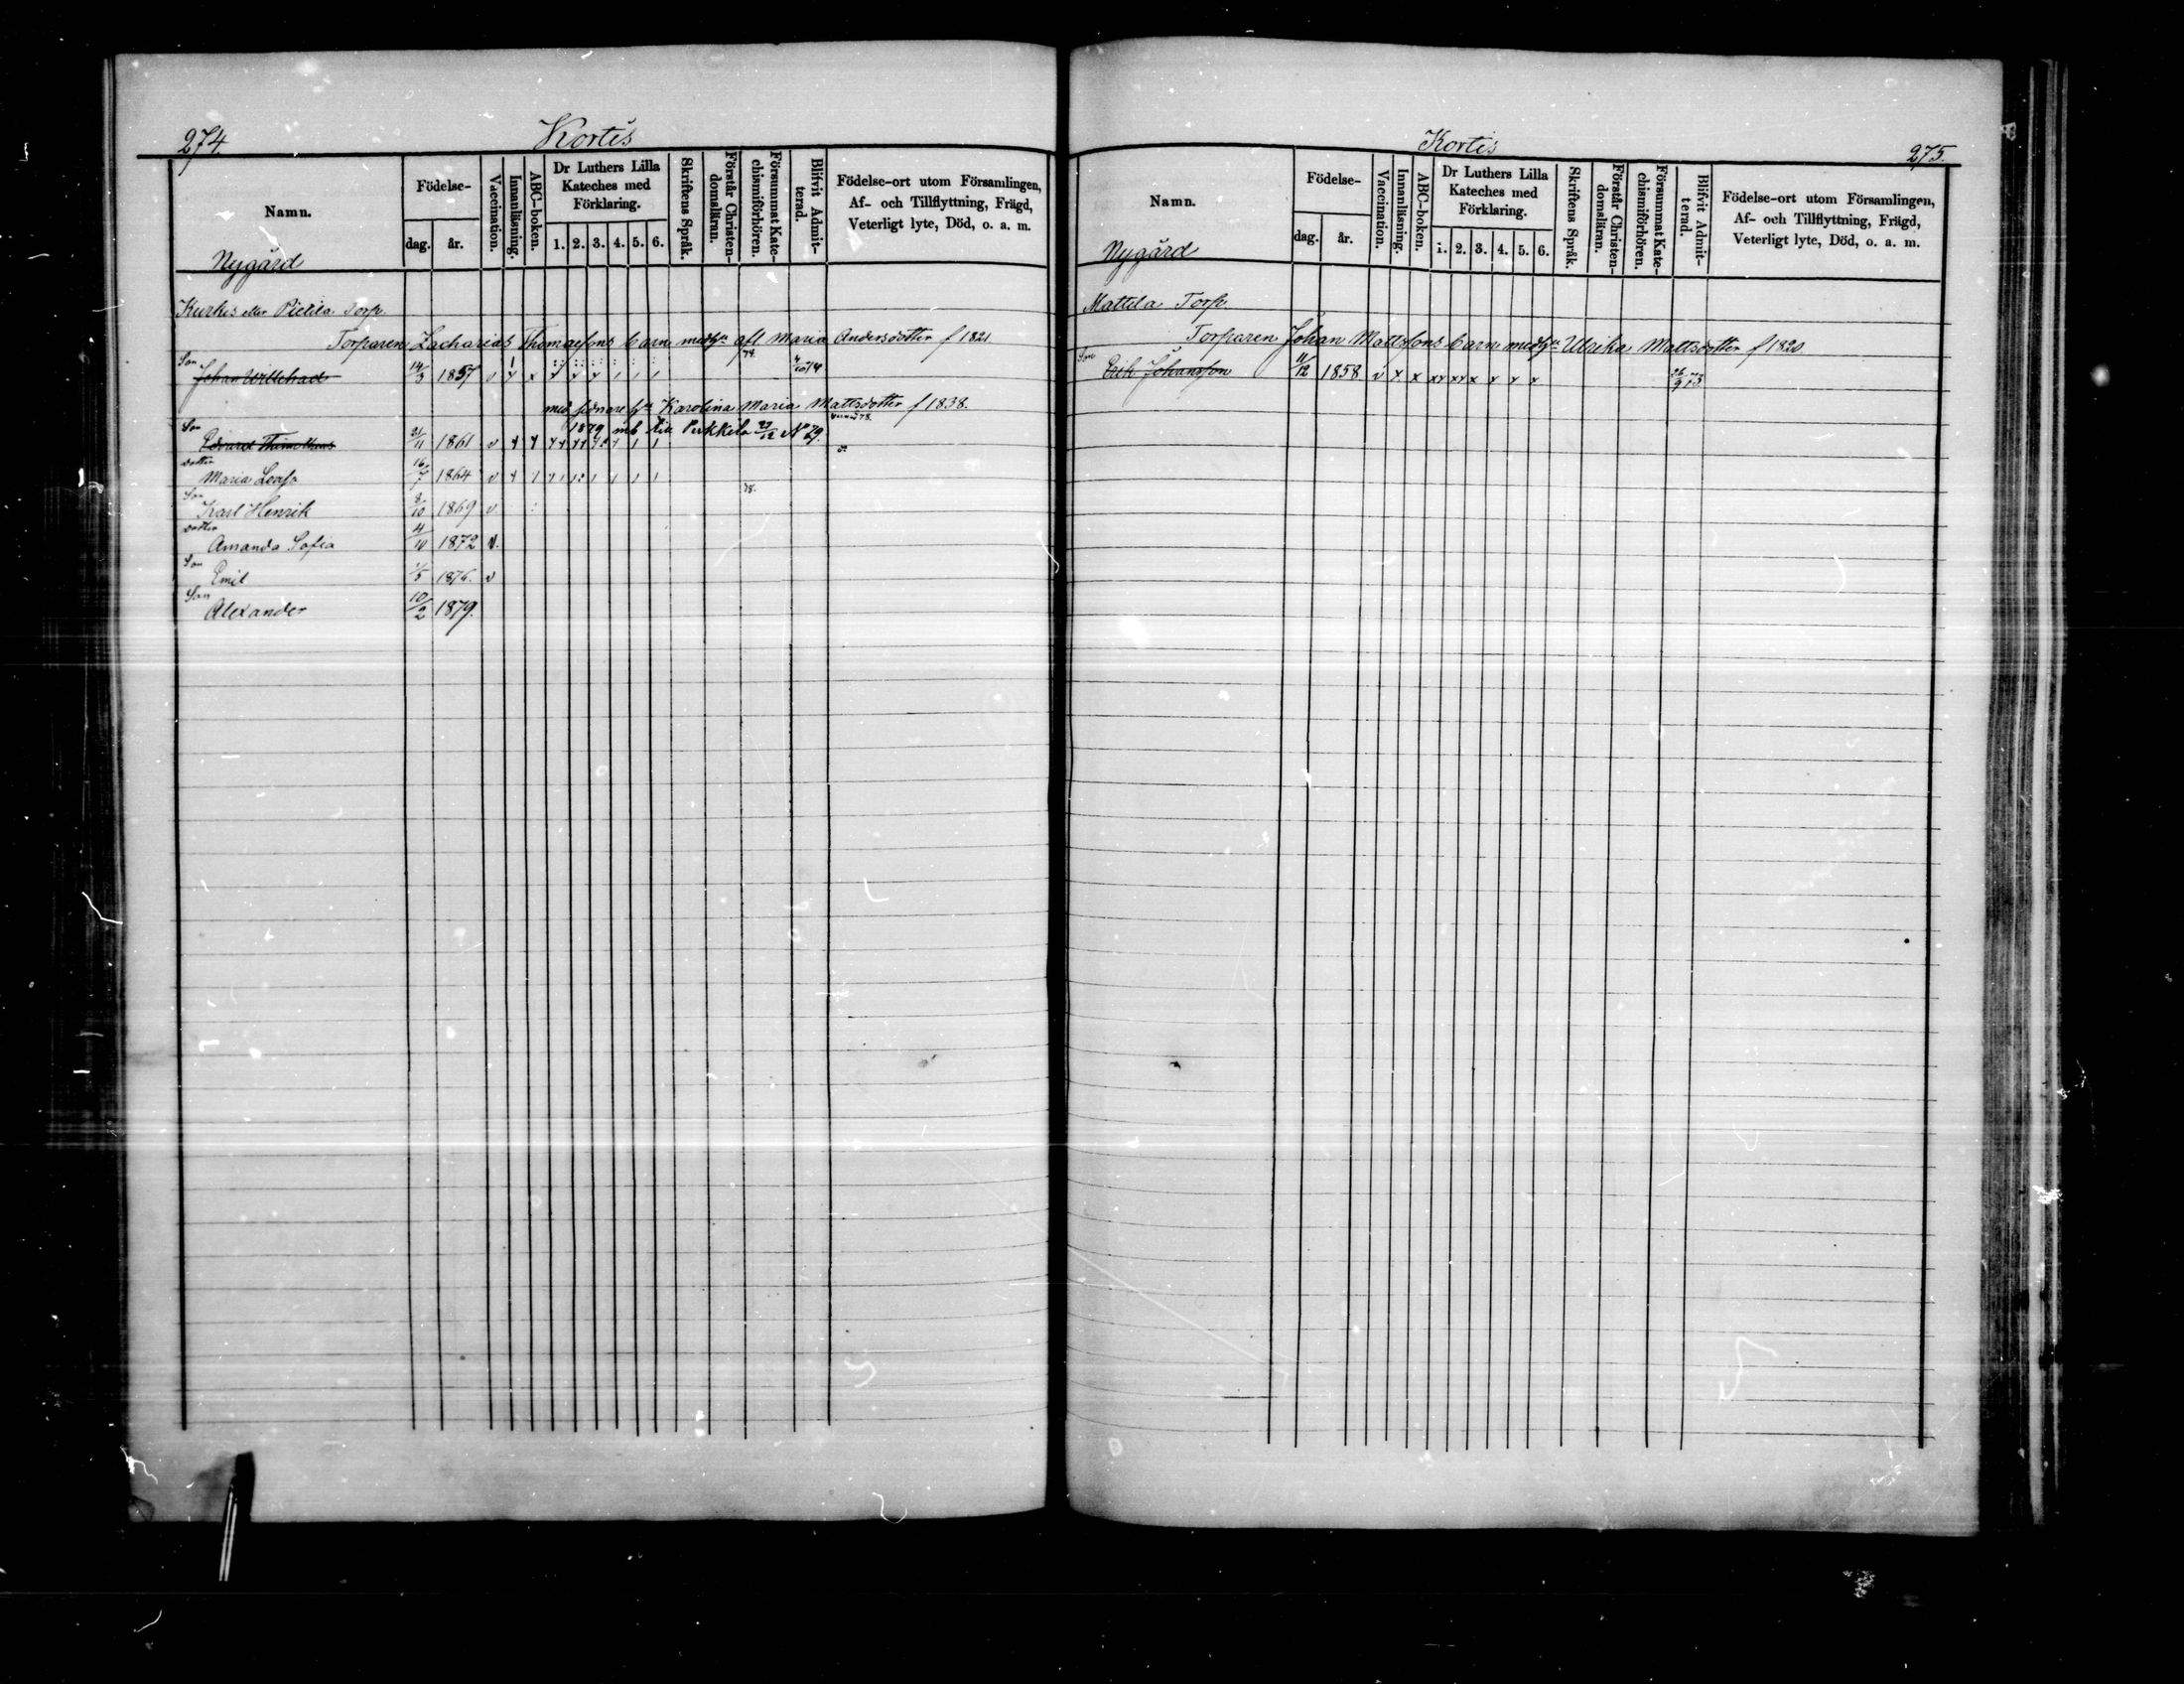 274.
Kortis
Namn.
Födelse-
dag. år.
Vaccination.
Innanläsning.
ABC-boken.
Dr Luthers Lilla
Kateches med
Förklaring.
1. 2. 3. 4. 5. 6.
Skriftens Språk.
Förstår Christen-
domsläran.
Försummat Kate-
chismiförhören.
Blifvit Admit-
terad.
Födelse-ort utom Församlingen,
Af- och Tillflyttning, Frägd,
Veterligt lyte, Död, o. a. m.
Nygård
Kurkis eller Pietila Torp.
Torparen Zacharias Thomassons barn med h:u afl Maria Andersdotter f 1821
Son
Johan Willehad 14/3 1857 v
med sednare h:u Karolina Maria Mattsdotter f 1838.
1879 Pukkila 27/12 N 79.
Son
Edvard 21/11 1861 v
Dotter
Maria 16/7 1864 v
78.
Son
Karl Henrik 8/10 1869 v
Dotter
Amanda Sofia 4/10 1872 v.
Son
Emil 1/5 1876. v
Son
Alexander 10/2 1879.
275.
Kortis
Namn.
Födelse-
dag. år.
Vaccination.
Innanläsning.
ABC-boken.
Dr Luthers Lilla
Kateches med
Förklaring.
1. 2. 3. 4. 5. 6.
Skriftens Språk.
Förstår Christen-
domsläran.
Försummat Kate-
chismiförhören.
Blifvit Admit-
terad.
Födelse-ort utom Församlingen,
Af- och Tillflyttning, Frägd,
Veterligt lyte, Död, o. a. m.
Nygård
Mattila Torp.
Torparen Johan Mattssons barn med h:u Ulrika Mattsdotter f 1820
Son
Erik Johansson 11/12 1858 v x x xx xx x x x x